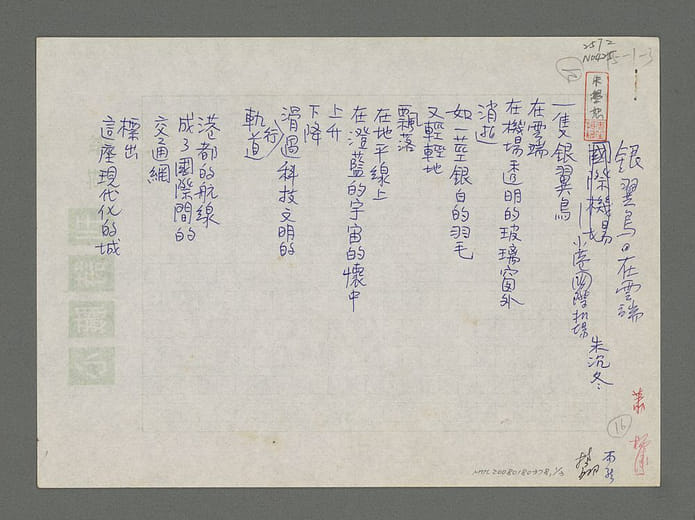 銀翼鳥日在雲端
國際機場
——小港國際機場
朱沉冬
一隻銀翼鳥
在雲端
在機場透明的玻璃窗外
消逝
如一莖銀白的羽毛
又輕輕地
飄落
在地平線上
在澄藍的宇宙的懷中
上升
下降
滑過科技文明的
行
軌道
港都的航線
成了國際間的
交通網
標出
這座現代化的城
2572
16
NMTL20080180978,1/3